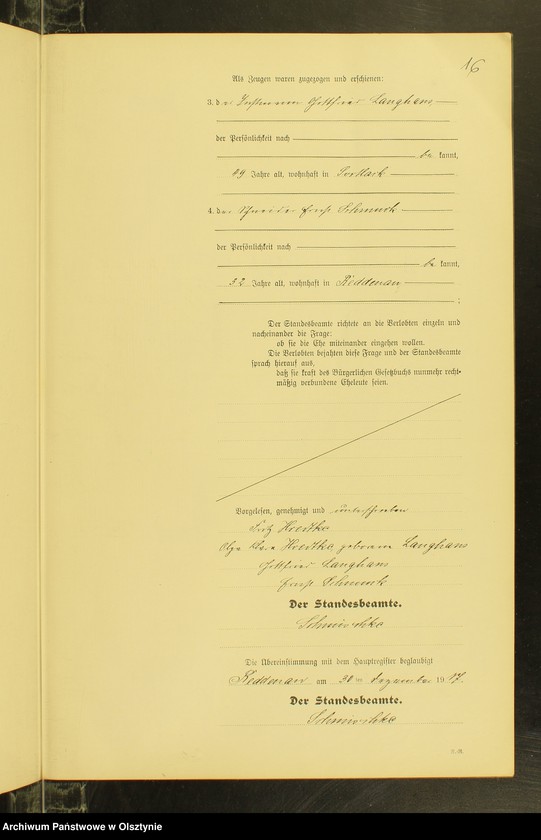 16
Als Zeugen waren zugezogen und erschienen:
3. der Instmann Gottfried Langhans
der Persönlichkeit nach
be kannt,
49 Jahre alt, wohnhaft in
4. der Schneider Ernst Schmuck
der Persönlichkeit nach
be kannt,
32 Jahre alt, wohnhaft in Reddenau
;
Der Standesbeamte richtete an die Verlobten einzeln und
nacheinander die Frage:
ob sie die Ehe miteinander eingehen wollen.
Die Verlobten bejahten diese Frage und der Standesbeamte
sprach hierauf aus,
daß sie kraft des Bürgerlichen Gesetzbuchs nunmehr recht-
mäßig verbundene Eheleute seien.
Vorgelesen, genehmigt und unterschrieben
Fritz
Olga geborene Langhans
Gottfried Langhans
Ernst Schmuck
Der Standesbeamte.
Die Übereinstimmung mit dem Hauptregister beglaubigt
Reddenau am 30 ten Dezember 1917.
Der Standesbeamte.
Archiwum Państwowe w Olsztynie